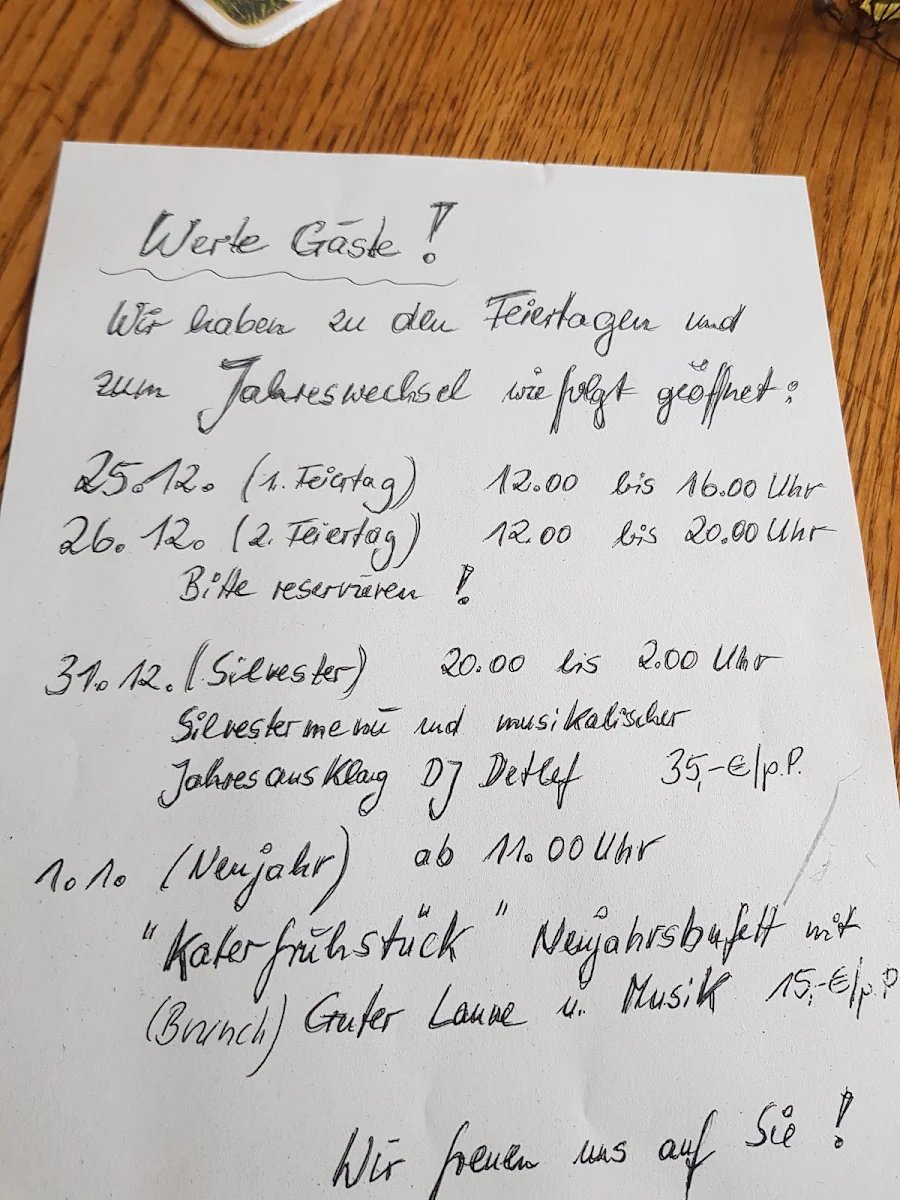 Werte Gäste!
Wir haben zu den Feiertagen und
zum Jahreswechsel wie folgt geöffnet:
25.12. (1. Feiertag) 12.00 bis 16.00 Uhr
26.12. (2. Feiertag) 12.00 bis 20.00 Uhr
Bitte reservieren!
31.12. (Silvester) 20.00 bis 2.00 Uhr
Silvestermenü und musikalischer
Jahresausklag DJ Detlef 35,-€/p.P.
1.1. (Neujahr) ab 11.00 Uhr
"Katerfrühstück" Neujahrsbufett mit
(Brunch) Guter Laune u. Musik 15,-€/p.P
Wir freuen uns auf Sie!